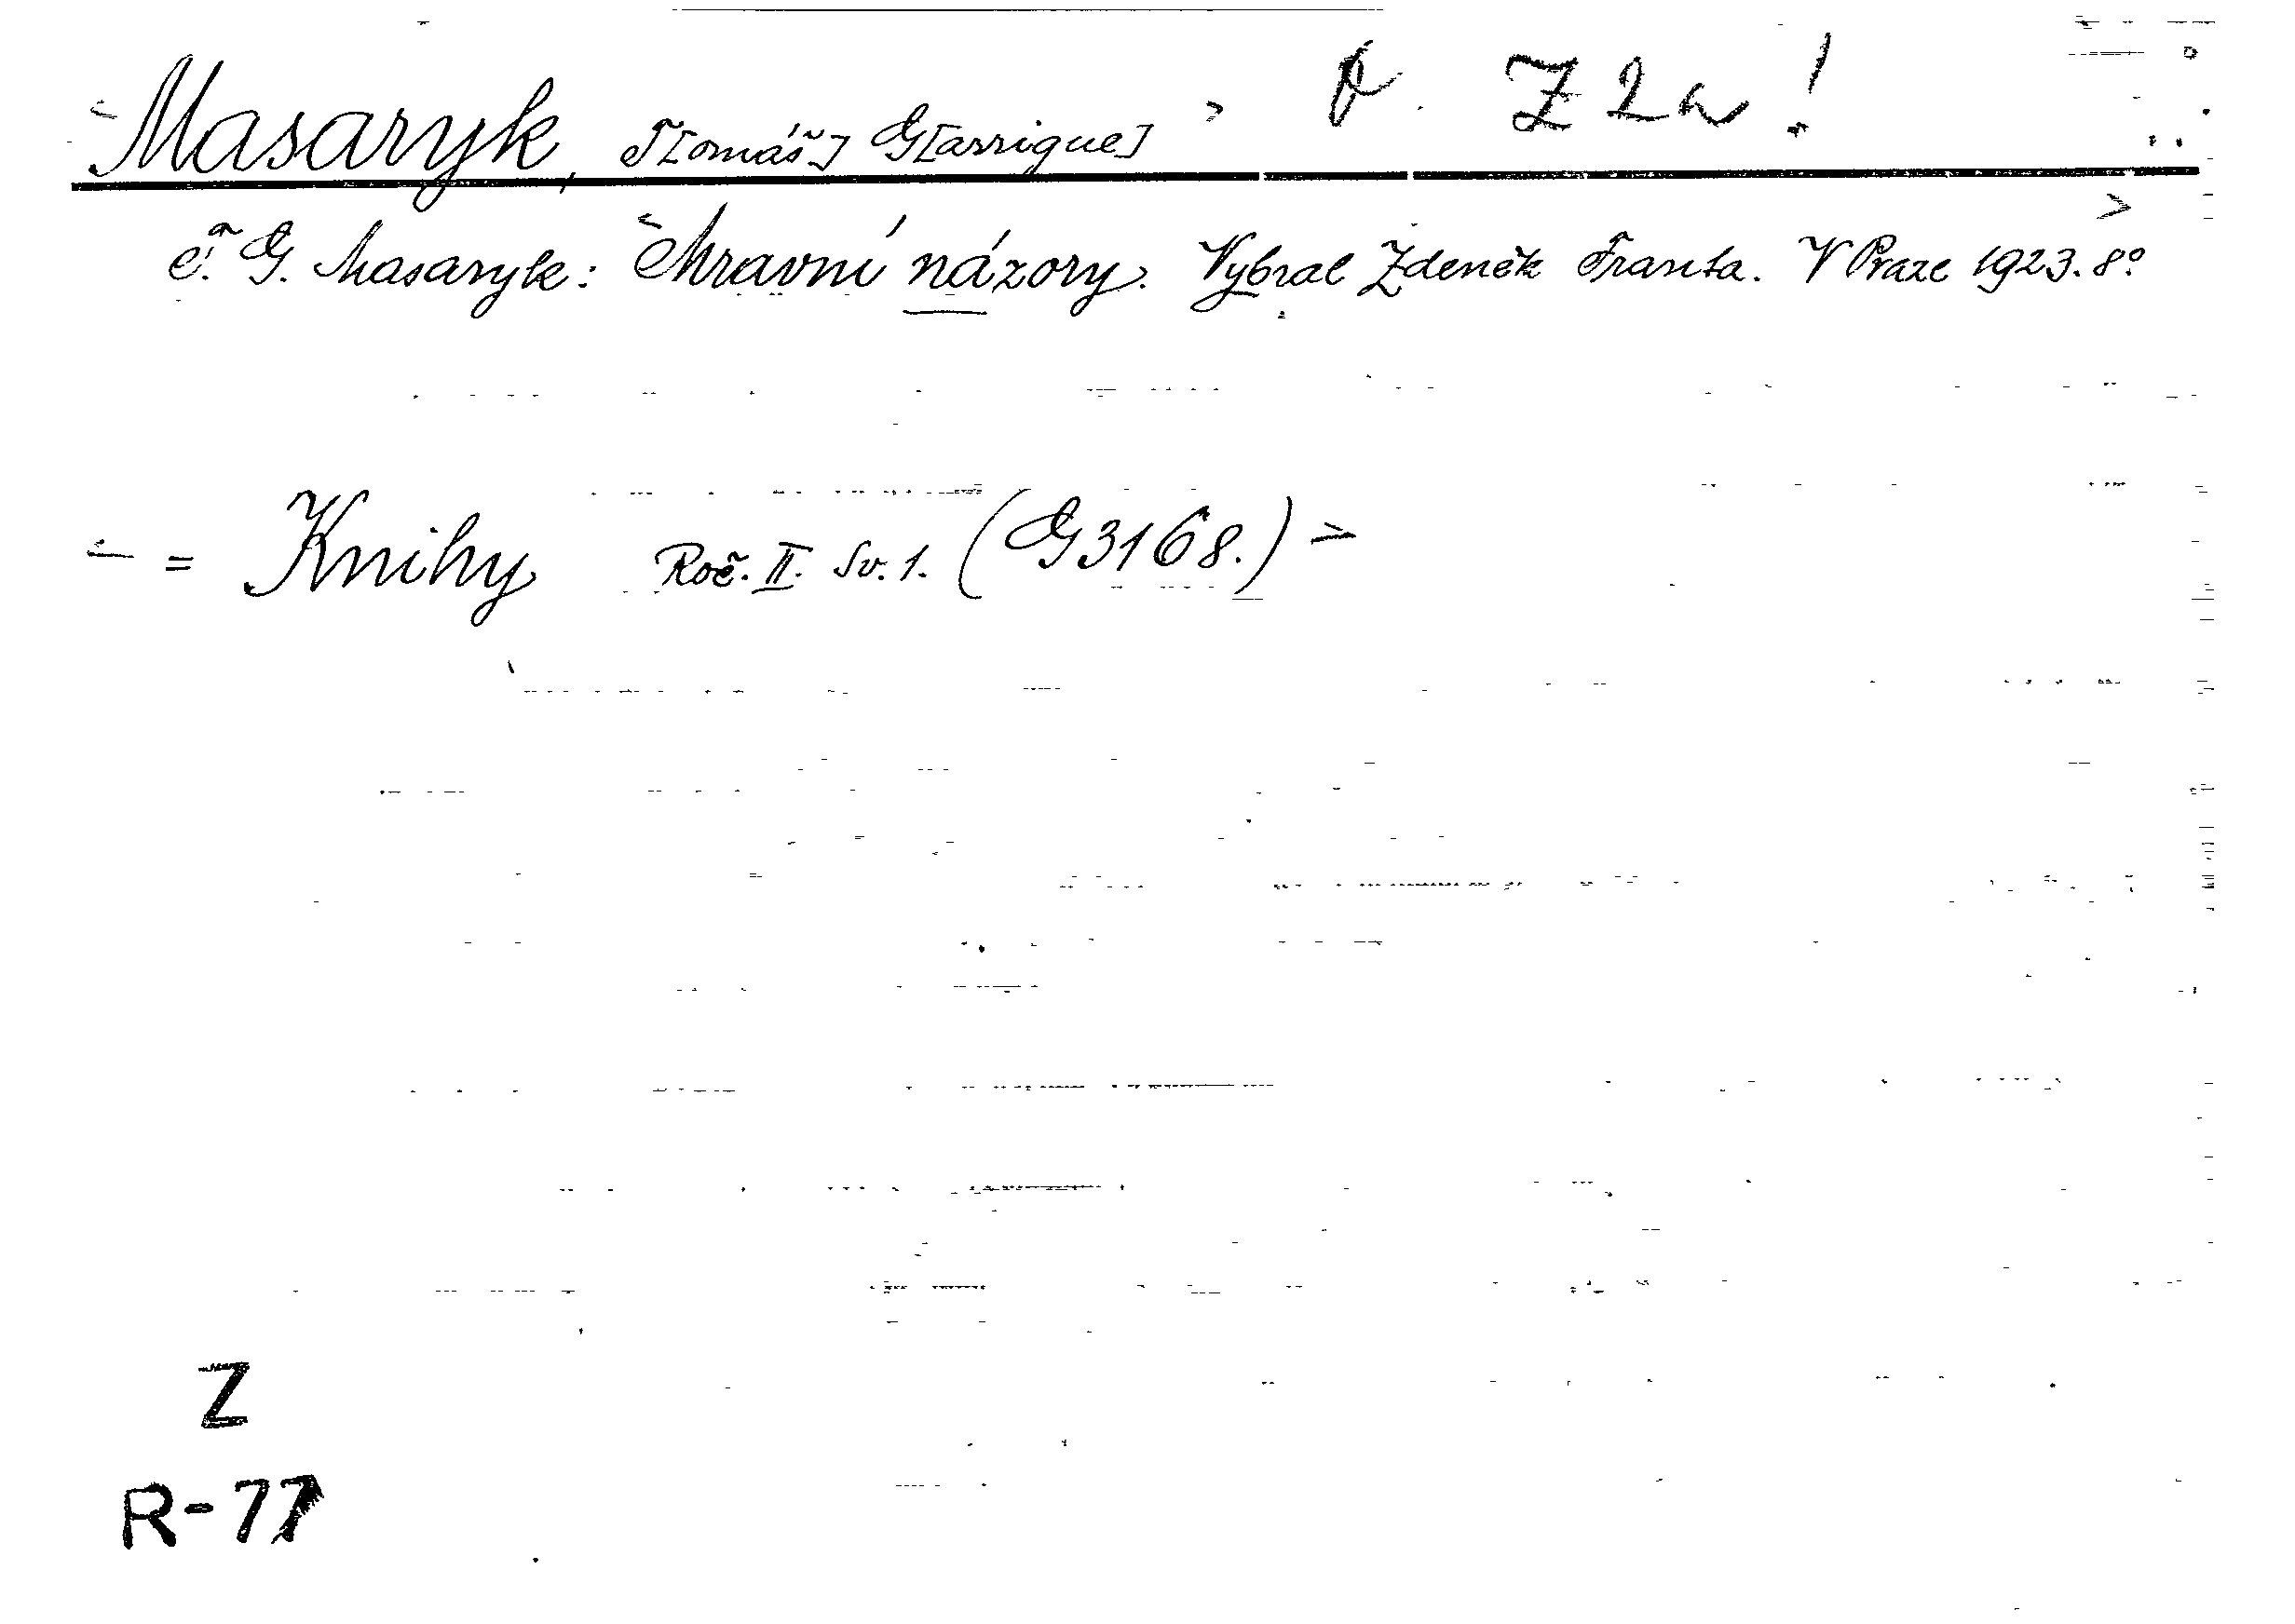 Masaryk, T[omáš] G[arrigue] Z 2a!
T. G. Masaryk: Mravní názory. Vybral Zdeněk Franta. V Praze 1923. 8°
= Knihy Roč. II. Sv. 1. (G 3168.)
Z
R-77